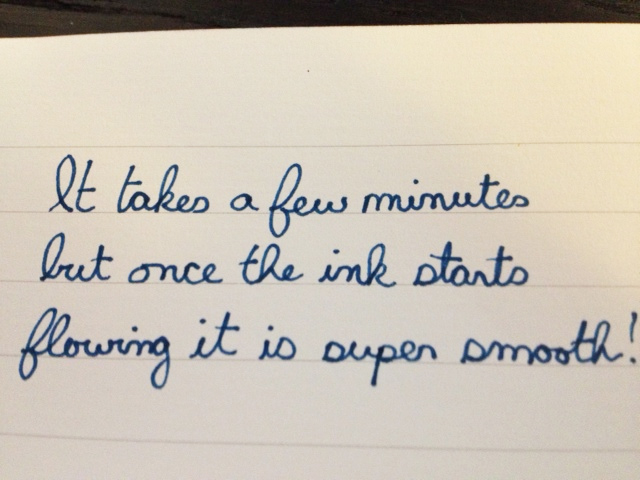 It takes a few minutes
but once the ink starts
flowing it is super smooth!